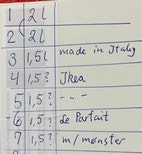 1 2l
2 2l
3 1,5l made in Italy
4 1,5? Ikea
5 1,5? -"-
6 1,5? de Parfait
7 1,5? m/mønster